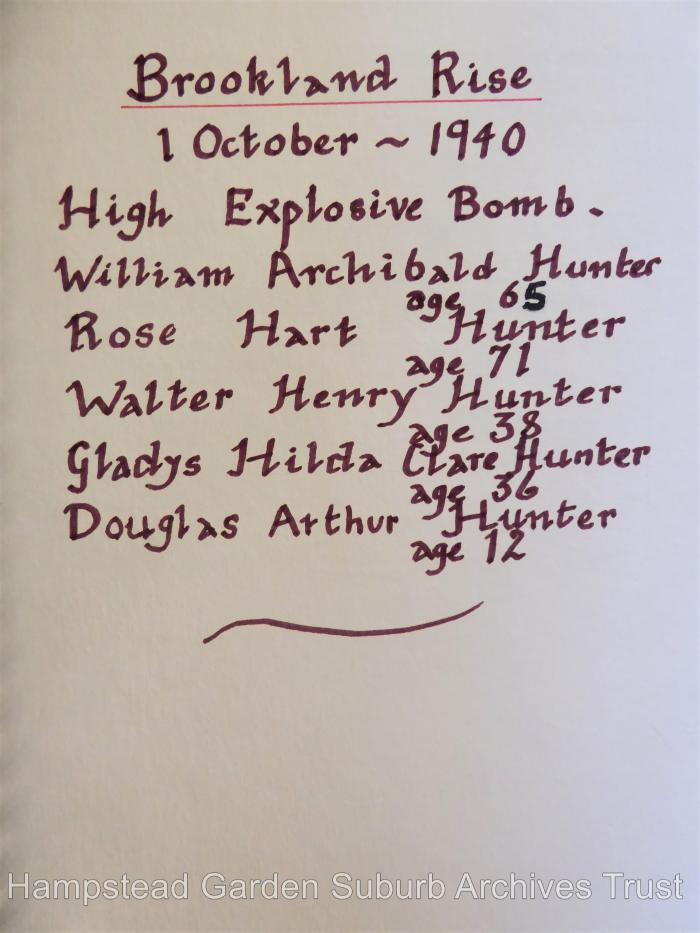 Brookland Rise
1 October ~ 1940
High Explosive Bomb.
William Archibald Hunter
age 65
Rose Hart Hunter
age 71
Walter Henry Hunter
age 38
Gladys Hilda Clare Hunter
age 36
Douglas Arthur Hunter
age 12
Hampstead Garden Suburb Archives Trust